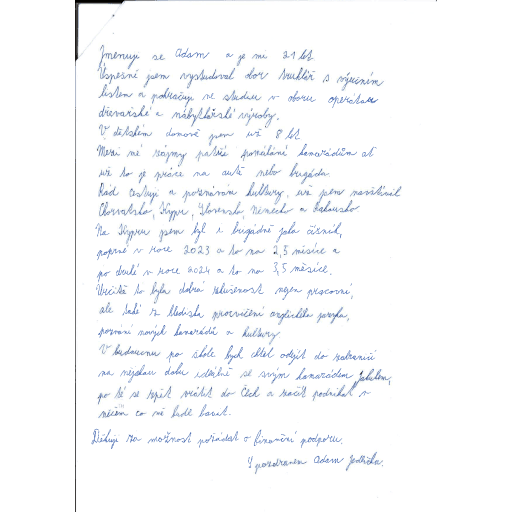 Jmenuji se Adam a je mi 21 let
Úspěšně jsem vystudoval obor truhlář s výučním
listem a pokračuji ve studiu v oboru operátor
dřevařské a nábytkářské výroby.
V dětském domově jsem už 8 let
Mezi mé zájmy patří pomáhání kamarádům ať
už to je práce na autě nebo brigáda
Rád cestuji a poznávám kultury, už jsem navštívil
Chorvatsko, Kypr, Slovensko, Německo a Rakousko
Na Kypru jsem byl i brigádně jako číšník,
poprvé v roce 2023 a to na 2,5 měsíce a
po druhé v roce 2024 a to na 3,5 měsíce.
Určitě to byla dobrá zkušenost nejen pracovní,
ale také z hlediska procvičení anglického jazyka,
poznání nových kamarádů a kultury
V budoucnu po škole bych chtěl odejít do zahraničí
na nějakou dobu ideálně se svým kamarádem Jakubem,
po té se zpět vrátit do Čech a začít podnikat v
něčem co mě bude bavit.
Děkuji za možnost požádat o finanční podporu.
S pozdravem Adam Jedlička.